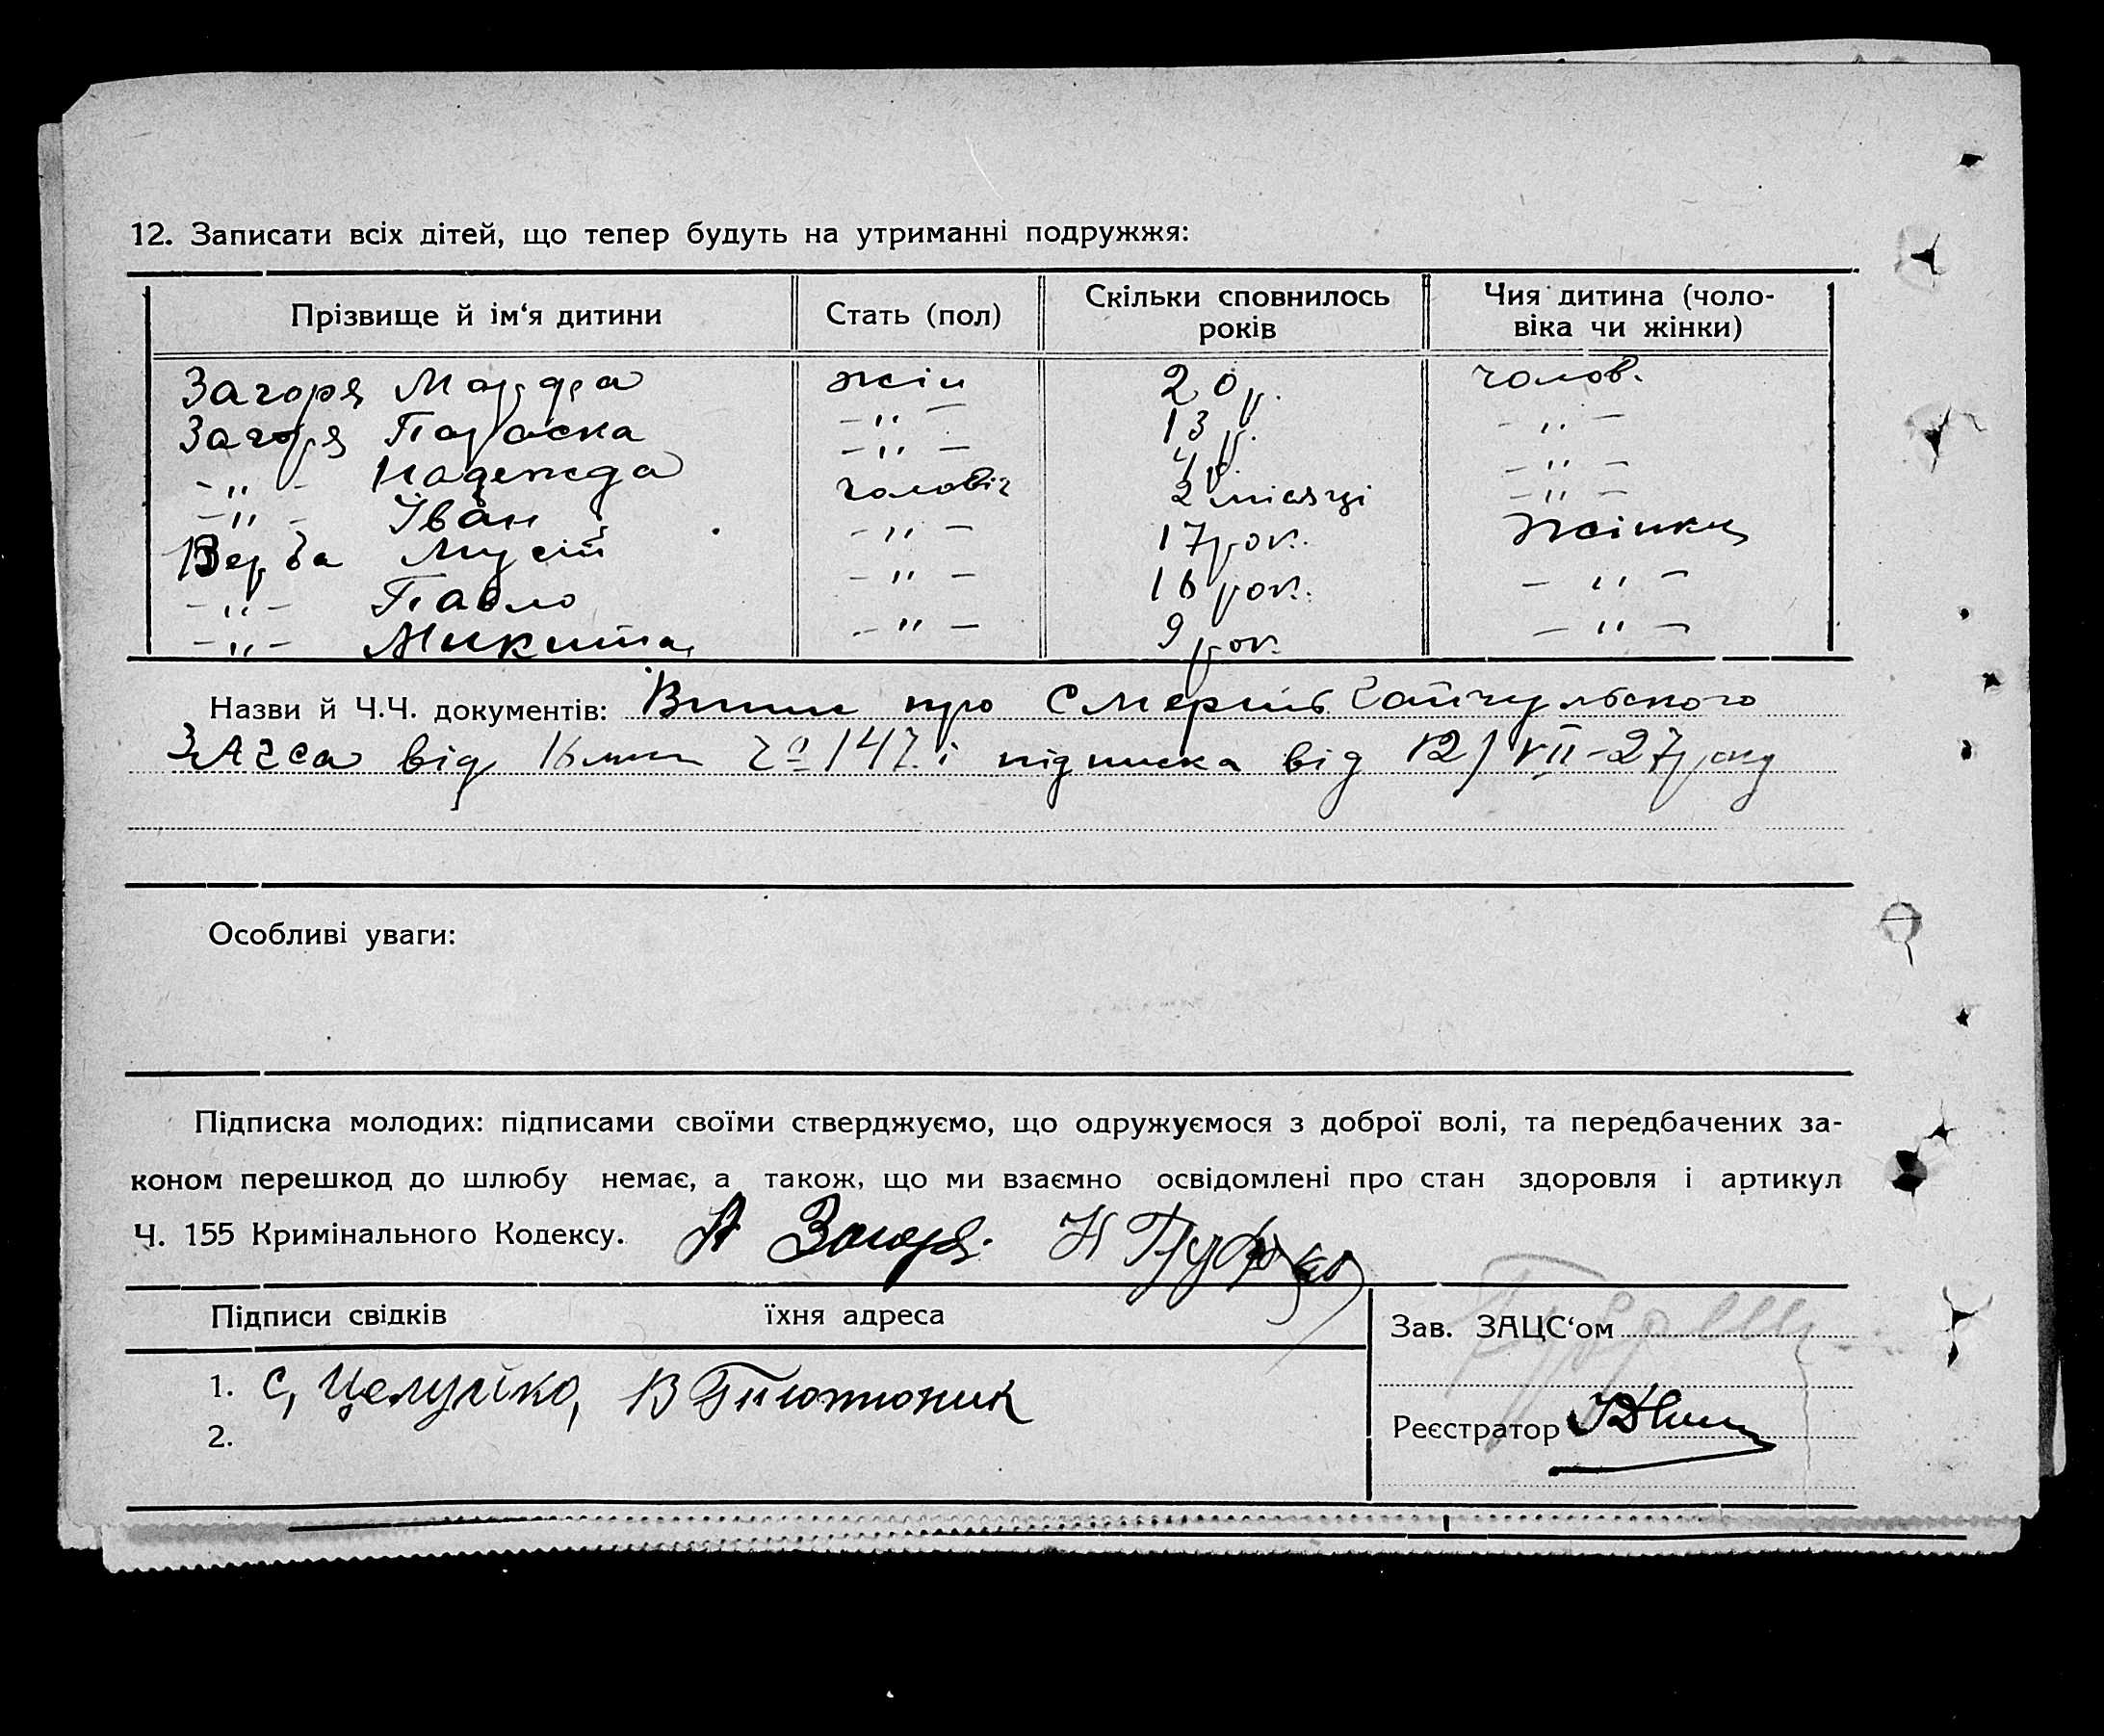 12. Записати всіх дітей, що тепер будуть на утриманні подружжя:
Прізвище й ім'я дитини Стать (пол) Скільки сповнилось років Чия дитина (чоловіка чи жінки)
Загоря жін 20 р. чолов.
Загоря Параска -"- 13 р. -"-
-"- Надежда -"- 4 р. -"-
-"- Іван чоловіч 2 місяці -"-
Верба Мусій -"- 17 рок. Жінки
-"- Павло -"- 16 рок. -"-
-"- Микита -"- 9 рок. -"-
Назви й Ч.Ч. документів: про Смерть Гайчульського
ЗАГСа від 147 і підписка від 12/VII-27 року
Особливі уваги:
Підписка молодих: підписами своїми стверджуємо, що одружуємося з доброї волі, та передбачених за-
коном перешкод до шлюбу немає, а також, що ми взаємно освідомлені про стан здоровля і артикул
Ч. 155 Кримінального Кодексу. А Загоря
Підписи свідків їхня адреса
Зав. ЗАЦС'ом
1. С, Целуйко, В Тютюник
2.
Реєстратор